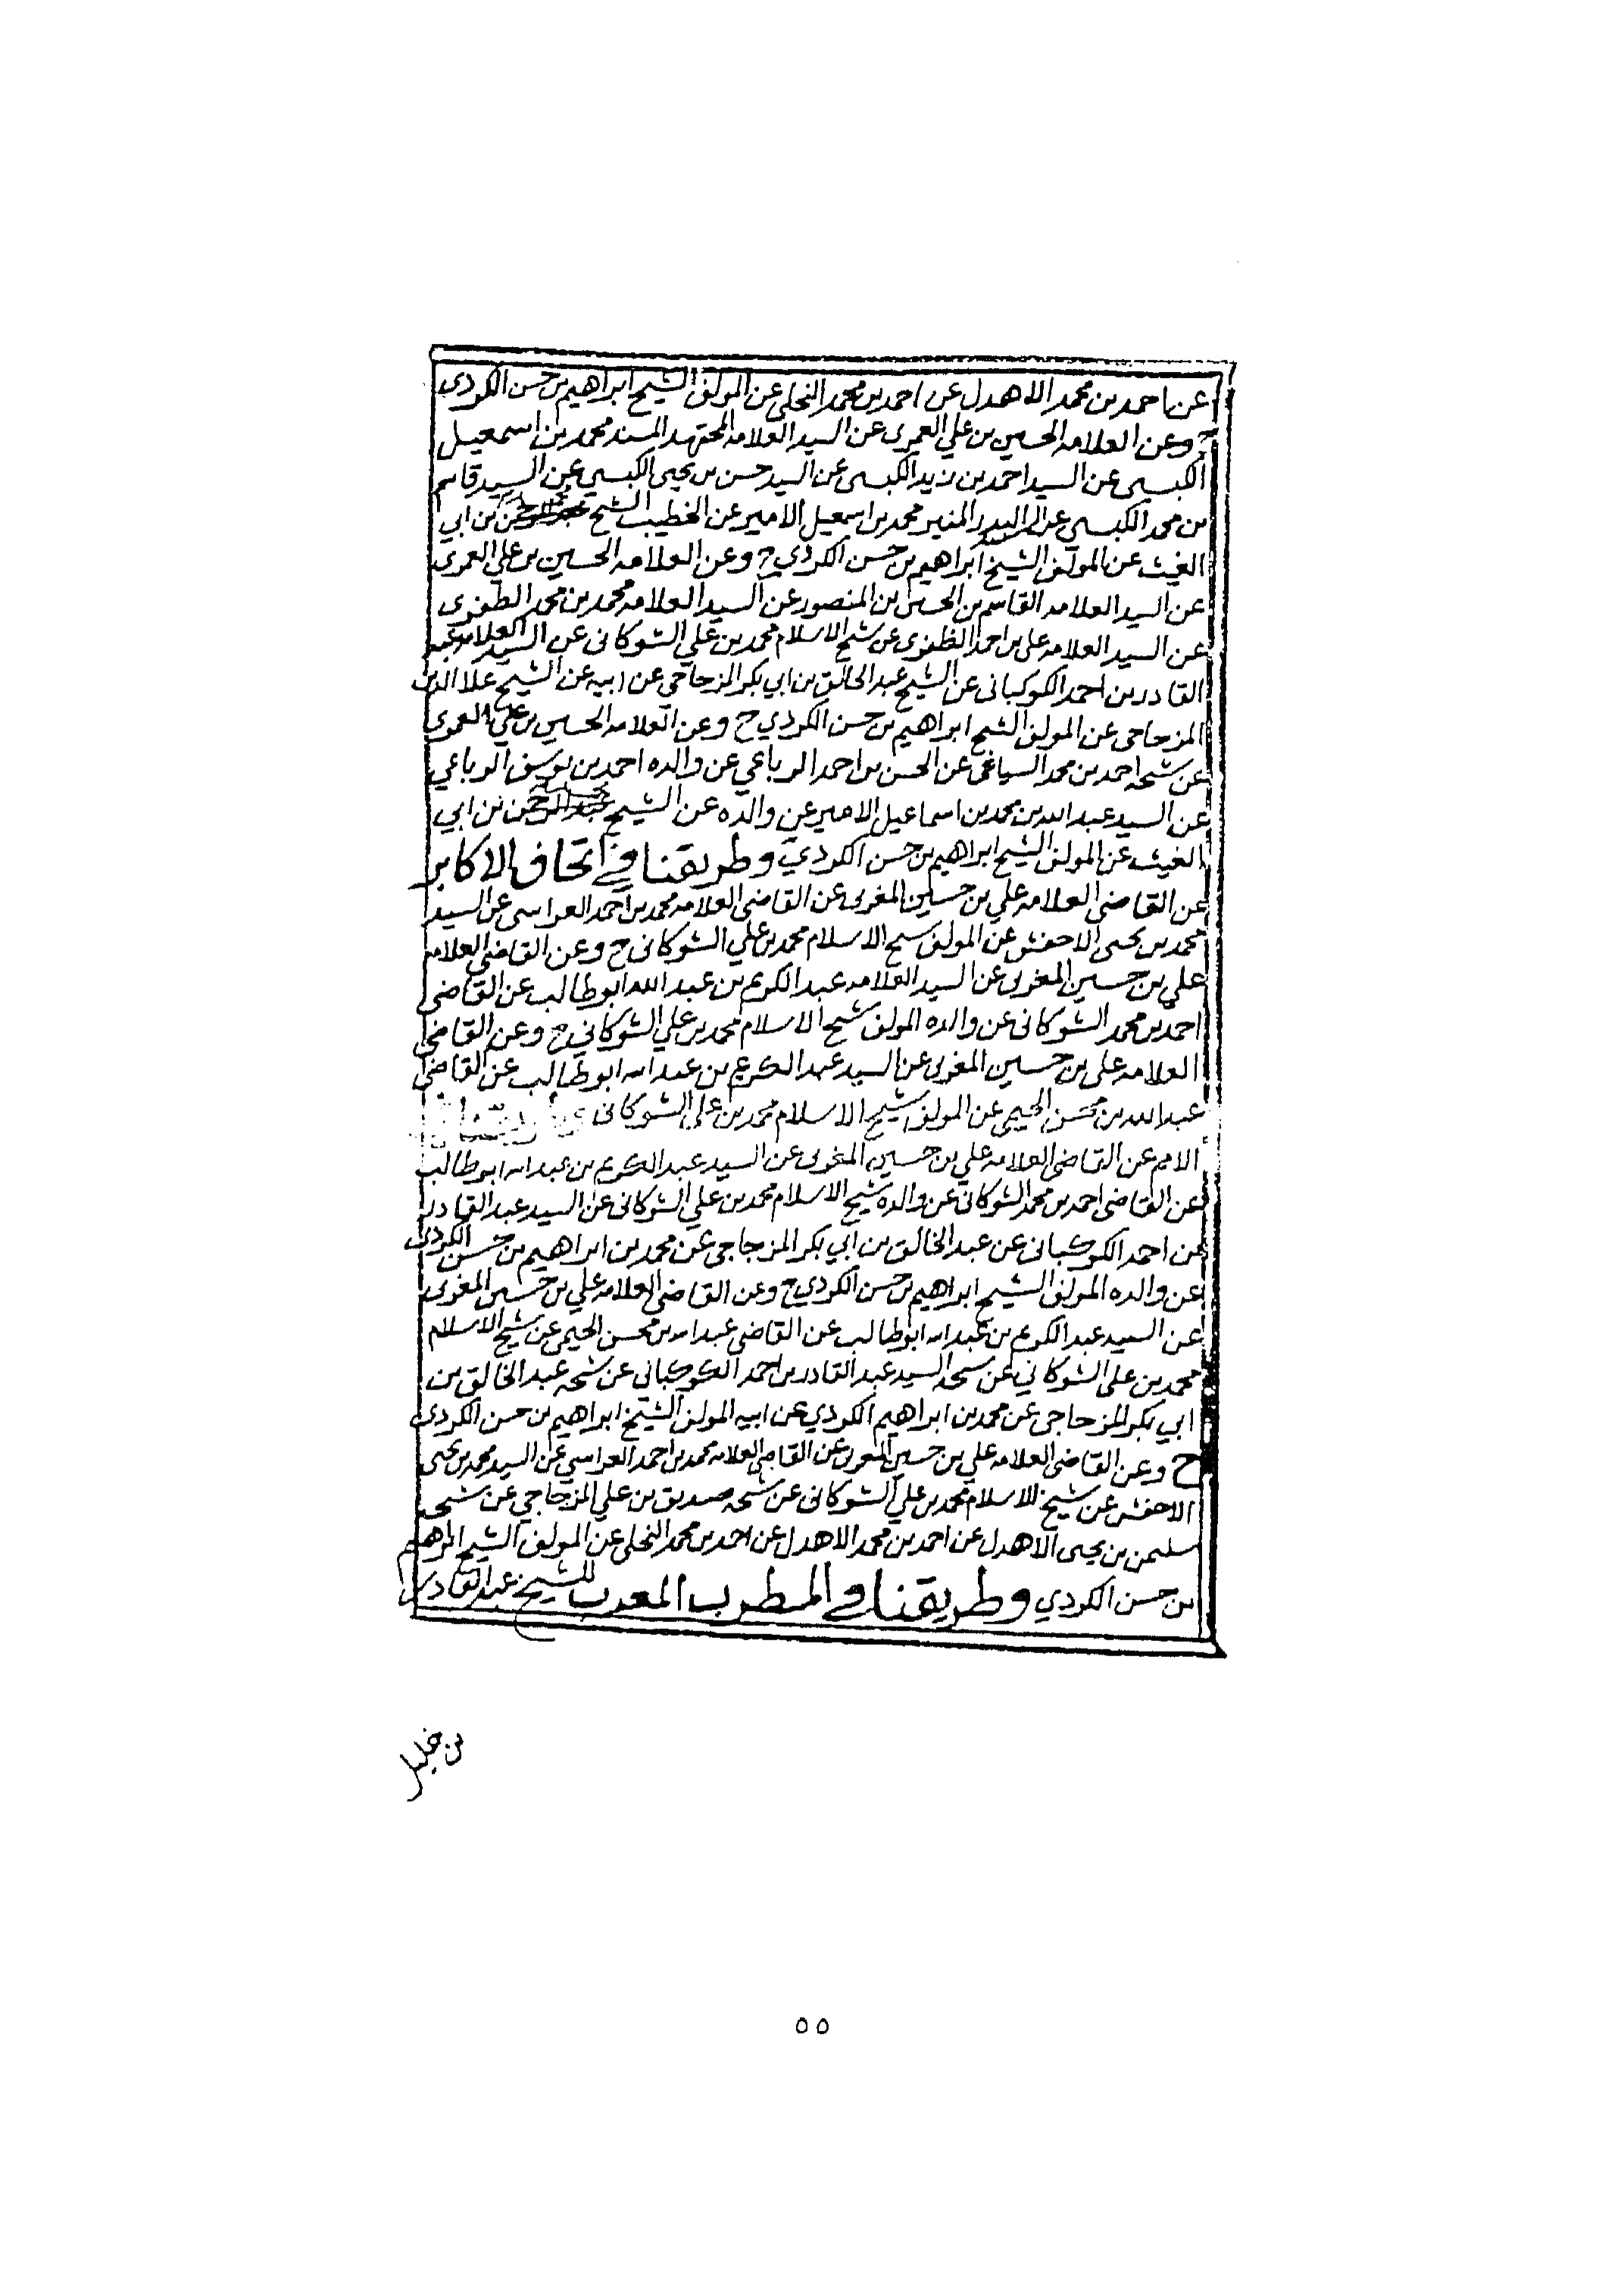 عن احمد بن محمد الاهدل عن احمد بن محمد النخلي عن المولف الشيخ ابراهيم بن حسن الكردي
ح وعن العلامه الحسين بن علي العمري عن السيد العلامه المجتهد المسند محمد بن اسمعيل
الكبسي عن السيد احمد بن زيد الكبسي عن السيد حسن بن يحيى الكبسي عن السيد قاسم
بن محمد الكبسي عن السيد البدر المنير محمد بن اسمعيل الامير عن الخطيب الشيخ بن ابي
الغيث عن المولف الشيخ ابراهيم بن حسن الكردي ح وعن العلامه الحسين بن علي العمري
عن السيد العلامه القاسم بن الحسين بن المنصور عن السيد العلامه محمد بن محمد الظفري
عن السيد العلامه علي بن احمد الظفري عن شيخ الاسلام محمد بن علي الشوكاني عن السيد العلامه عبد
القادر بن احمد الكوكباني عن الشيخ عبد الخالق بن ابي بكر المزجاجي عن ابيه عن الشيخ علا الدين
المزجاجي عن المولف الشيخ ابراهيم بن حسن الكردي ح وعن العلامه الحسين بن علي العمري
عن شيخه احمد بن محمد السياغي عن الحسن بن احمد الرباعي عن والده احمد بن يوسف الرباعي
عن السيد عبد الله بن محمد بن اسماعيل الامير عن والده عن الشيخ بن ابي
الغيث عن المولف الشيخ ابراهيم بن حسن الكردي وطريقنا في اتحاف الاكابر
عن القاضي العلامه علي بن حسين المغربي عن القاضي العلامه محمد بن احمد العراسي عن السيد
محمد بن يحيى الاخفش عن المولف شيخ الاسلام محمد بن علي الشوكاني ح وعن القاضي العلامه
علي بن حسين المغربي عن السيد العلامه عبد الكريم بن عبد الله ابو طالب عن القاضي
احمد بن محمد الشوكاني عن والده المولف شيخ الاسلام محمد بن علي الشوكاني ح وعن القاضي
العلامه علي بن حسين المغربي عن السيد عبد الكريم بن عبد الله ابو طالب عن القاضي
عبد الله بن محسن الحيمي عن المولف شيخ الاسلام محمد بن علي الشوكاني
الامم عن القاضي العلامه علي بن حسين المغربي عن السيد عبد الكريم بن عبد الله ابو طالب
عن القاضي احمد بن محمد الشوكاني عن والده شيخ الاسلام محمد بن علي الشوكاني عن السيد عبد القادر
بن احمد الكوكباني عن عبد الخالق بن ابي بكر المزجاجي عن محمد بن ابراهيم بن حسن الكردي
عن والده المولف الشيخ ابراهيم بن حسن الكردي ح وعن القاضي العلامه علي بن حسين المغربي
عن السيد عبد الكريم بن عبد الله ابو طالب عن القاضي عبد الله بن محسن الحيمي عن شيخ الاسلام
محمد بن علي الشوكاني عن شيخه السيد عبد القادر بن احمد الكوكباني عن شيخه عبد الخالق بن
ابي بكر المزجاجي عن محمد بن ابراهيم الكردي عن ابيه المولف الشيخ ابراهيم بن حسن الكردي
ح وعن القاضي العلامه علي بن حسين المغربي عن القاضي العلامه محمد بن احمد العراسي عن السيد محمد بن يحيى
الاخفش عن شيخ الاسلام محمد بن علي الشوكاني عن شيخه صديق بن علي المزجاجي عن شيخه
سليمن بن يحيى الاهدل عن احمد بن محمد الاهدل عن احمد بن محمد النخلي عن المولف الشيخ ابراهيم
بن حسن الكردي وطريقنا في المطرب المعرب للشيخ عبد القادر
بن خليل
٥٥